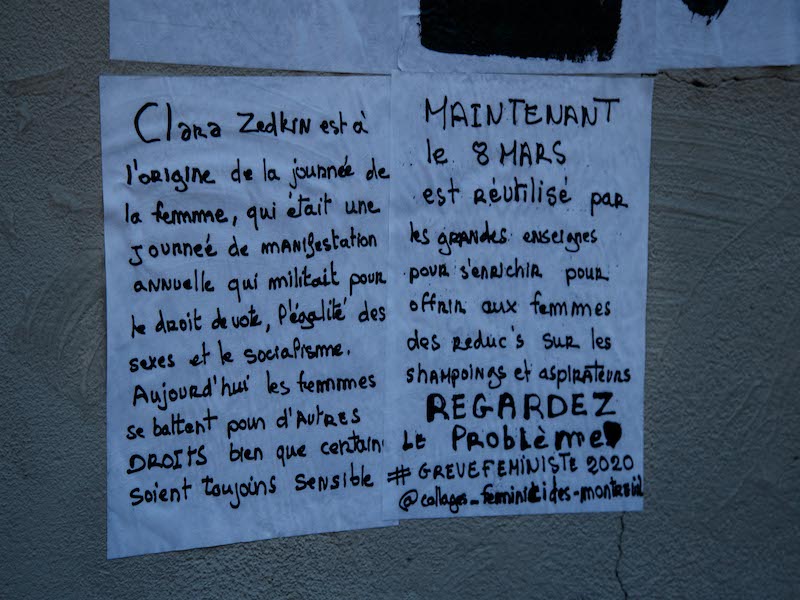 Clara Zedkin est à
l'origine de la journée de
la femme, qui était une
journeé de manifestation
annuelle qui militait pour
le droit de vote, l'égalité des
sexes et le socialisme.
Aujourd'hui les femmes
se battent pour d'AUTRES
DROITS bien que certain
soient toujoins sensible
MAINTENANT
le 8 MARS
est réutilisé par
les grandes enseignes
pour s'enrichir pour
offrir aux femmes
des reduc's sur les
shampoings et aspirateurs
REGARDEZ
LE PROBLÈME
#GREVEFEMINISTE 2020
@collages_feminicides-montreuil